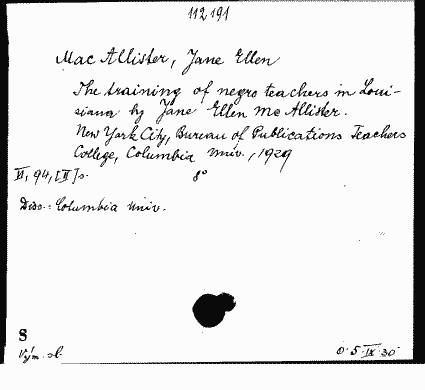 112191
Mac Allister, Jane Ellen
The training of negro teachers in Loui-
siana by Jane Ellen Mc Allister.
New York City, Bureau of Publications Teachers
College, Columbia Univ., 1929
VI, 94, [II] s. 8°
Diss.: Columbia Univ.
S
Vým. sb.
O. 5.IX.30